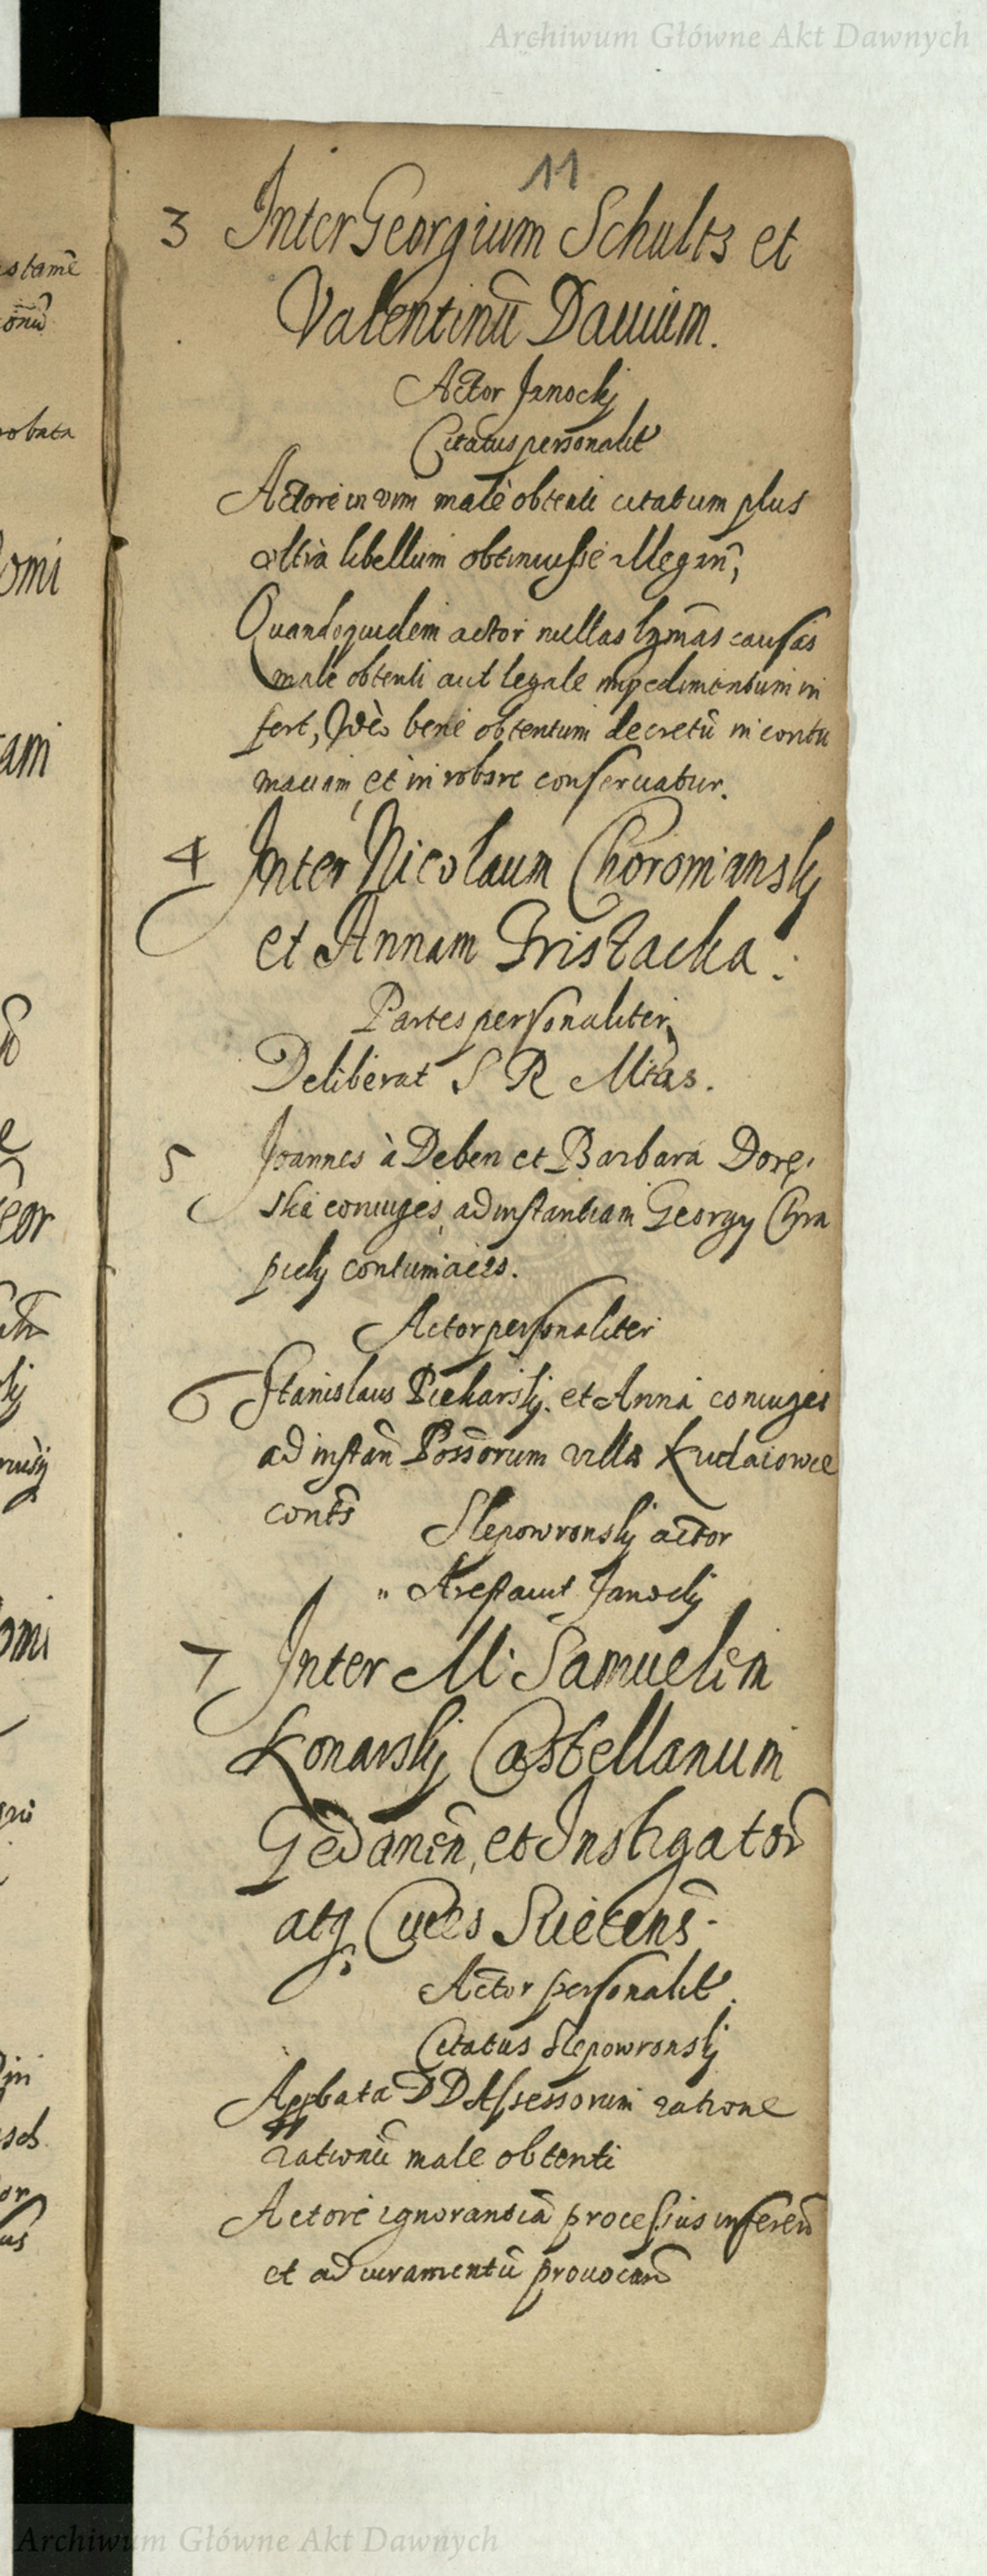 Archiwum Główne Akt Dawnych
11
3 Inter Georgium Schults et
Valentinū Dauium.
Actor Janockj
Citatus personalit
Actore in vim male obtenti citatum plus
ultra libellum obtinuisse allegan̄,
Quandoquidem actor nullas lgm̄as causas
male obtenti aut legale impedimentum in
fert, Ideo bene obtentum decretū in contu
maciam, et in robore conseruatur.
4 Inter Nicolaum Choromanskj
et Annam
Partes personaliter,
Deliberat S R Mtas.
5 Joannes à Deben et Barbara Dorę.
ska coniuges, ad instantiam Georgy Chra
pickj contumaces.
Actor personaliter
6 Stanislaus Piekarskj. et Anna coniuges
ad instan̄ Possorum villa Kudaiowce
conts̄
Slepowronskj actor
" Arestauit Janockj
7 Inter M. Samuelem
Konarskj Castellanum
Gedanen̄, et Instigator̄
atq Ciues Suecens̄.
Actor personalit.
Citatus Slepowronskj
DD Assessorum ratione
rationū male obtenti
Actore ignorantiā processus inferen̄
et ad iuramentū prouocan̄
omi
ami
omi
Archiwum Główne Akt Dawnych